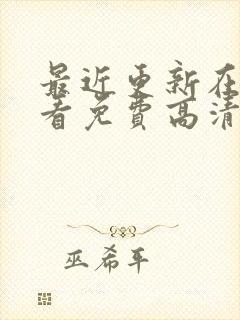 最近更新在
看免费高清
巫希平